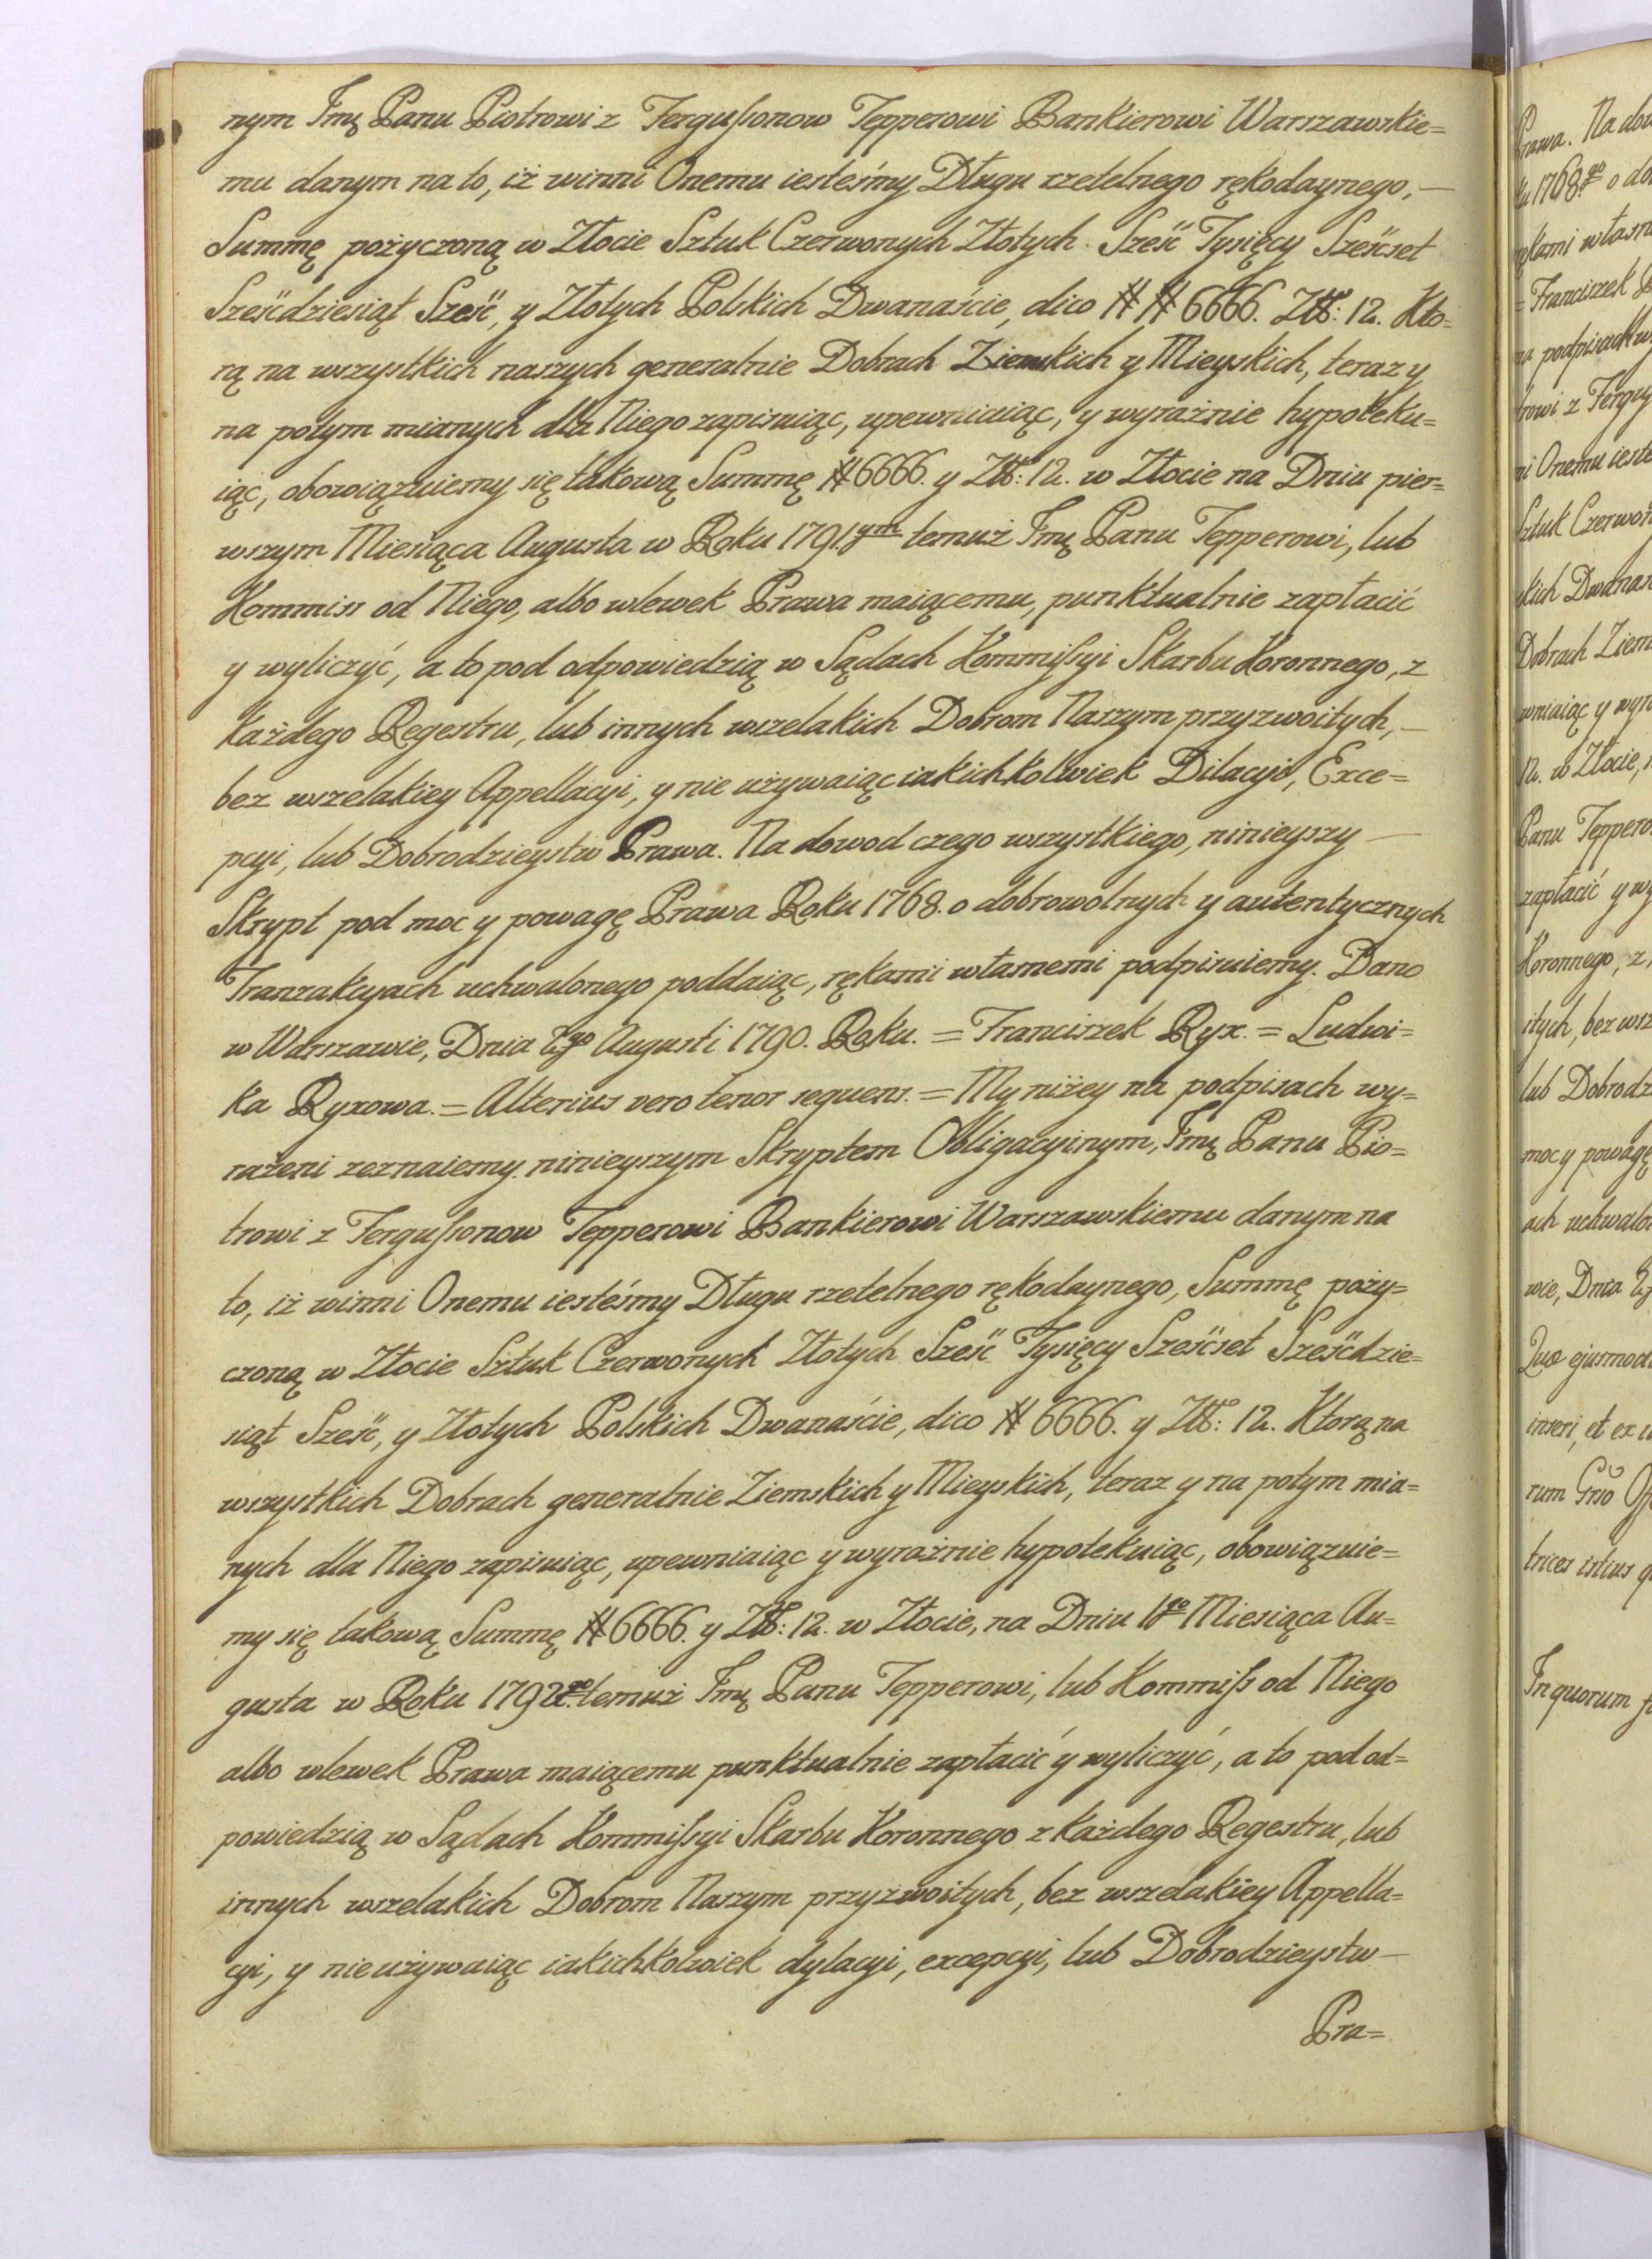 nym Jmę Panu Piotrowi z Fergussonow Tepperowi Bankierowi Warszawskie=
mu danym na to, iż winni Onemu iesteśmy Długu rzetelnego rękodaynego, —
Summę pożyczoną w Złocie Sztuk Czerwonych Złotych Sześć Tysięcy Sześćset
Sześćdziesiąt Sześć, y Złotych Polskich Dwanaście, dico # # 6666. Zł: 12. Kto=
rą na wszystkich naszych generalnie Dobrach Ziemskich y Mieyskich, teraz y
na potym mianych dla Niego zapisuiąc, upewniaiąc, y wyraźnie hypoteku=
iąc, obowiązuiemy się takową Summę # 6666. y Zł: 12. w Złocie na Dniu pier=
wszym Miesiąca Augusta w Roku 1791ym temuż Jmę Panu Tepperowi, lub
Kommiss od Niego, albo wlewek Prawa maiącemu, punktualnie zapłacić
y wyliczyć, a to pod odpowiedzią w Sądach Kommissyi Skarbu Koronnego, z
każdego Regestru, lub innych wszelakich Dobrom Naszym przyzwoitych, —
bez wszelakiey Appellacyi, y nie używaiąc iakichkolwiek Dilacyi, Exce=
pcyi, lub Dobrodzieystw Prawa. Na dowod czego wszystkiego, ninieyszy —
Skrypt pod moc y powagę Prawa Roku 1768. o dobrowolnych y autentycznych
Tranzakcyach uchwalonego poddaiąc, rękami własnemi podpisuiemy. Dano
w Warszawie, Dnia Augusti 1790. Roku. = Franciszek Ryx. = Ludwi=
ka Ryxowa. = Alterius vero tenor sequens. = My niżey na podpisach wy=
rażeni zeznaiemy ninieyszym Skryptem Obligacyinym, Jmę Panu Pio=
trowi z Fergussonow Tepperowi Bankierowi Warszawskiemu danym na
to, iż winni Onemu iesteśmy Długu rzetelnego rękodaynego, Summę poży=
czoną w Złocie Sztuk Czerwonych Złotych Sześć Tysięcy Sześćset Sześćdzie=
siąt Sześć, y Złotych Polskich Dwanaście, dico # 6666. y Zł: 12. Ktorą na
wszystkich Dobrach generalnie Ziemskich y Mieyskich, teraz y na potym mia=
nych dla Niego zapisuiąc, upewniaiąc y wyraźnie hypotekuiąc, obowiązuie=
my się takową Summę # 6666. y Zł: 12. w Złocie, na Dniu 1go Miesiąca Au=
gusta w Roku 1792go temuż Jmę Panu Tepperowi, lub Kommiss od Niego
albo wlewek Prawa maiącemu punktualnie zapłacić y wyliczyć, a to pod od=
powiedzią w Sądach Kommissyi Skarbu Koronnego z każdego Regestru, lub
innych wszelakich Dobrom Naszym przyzwoitych, bez wszelakiey Appella=
cyi, y nie używaiąc iakichkolwiek dylacyi, excepcyi, lub Dobrodzieystw —
Pra=